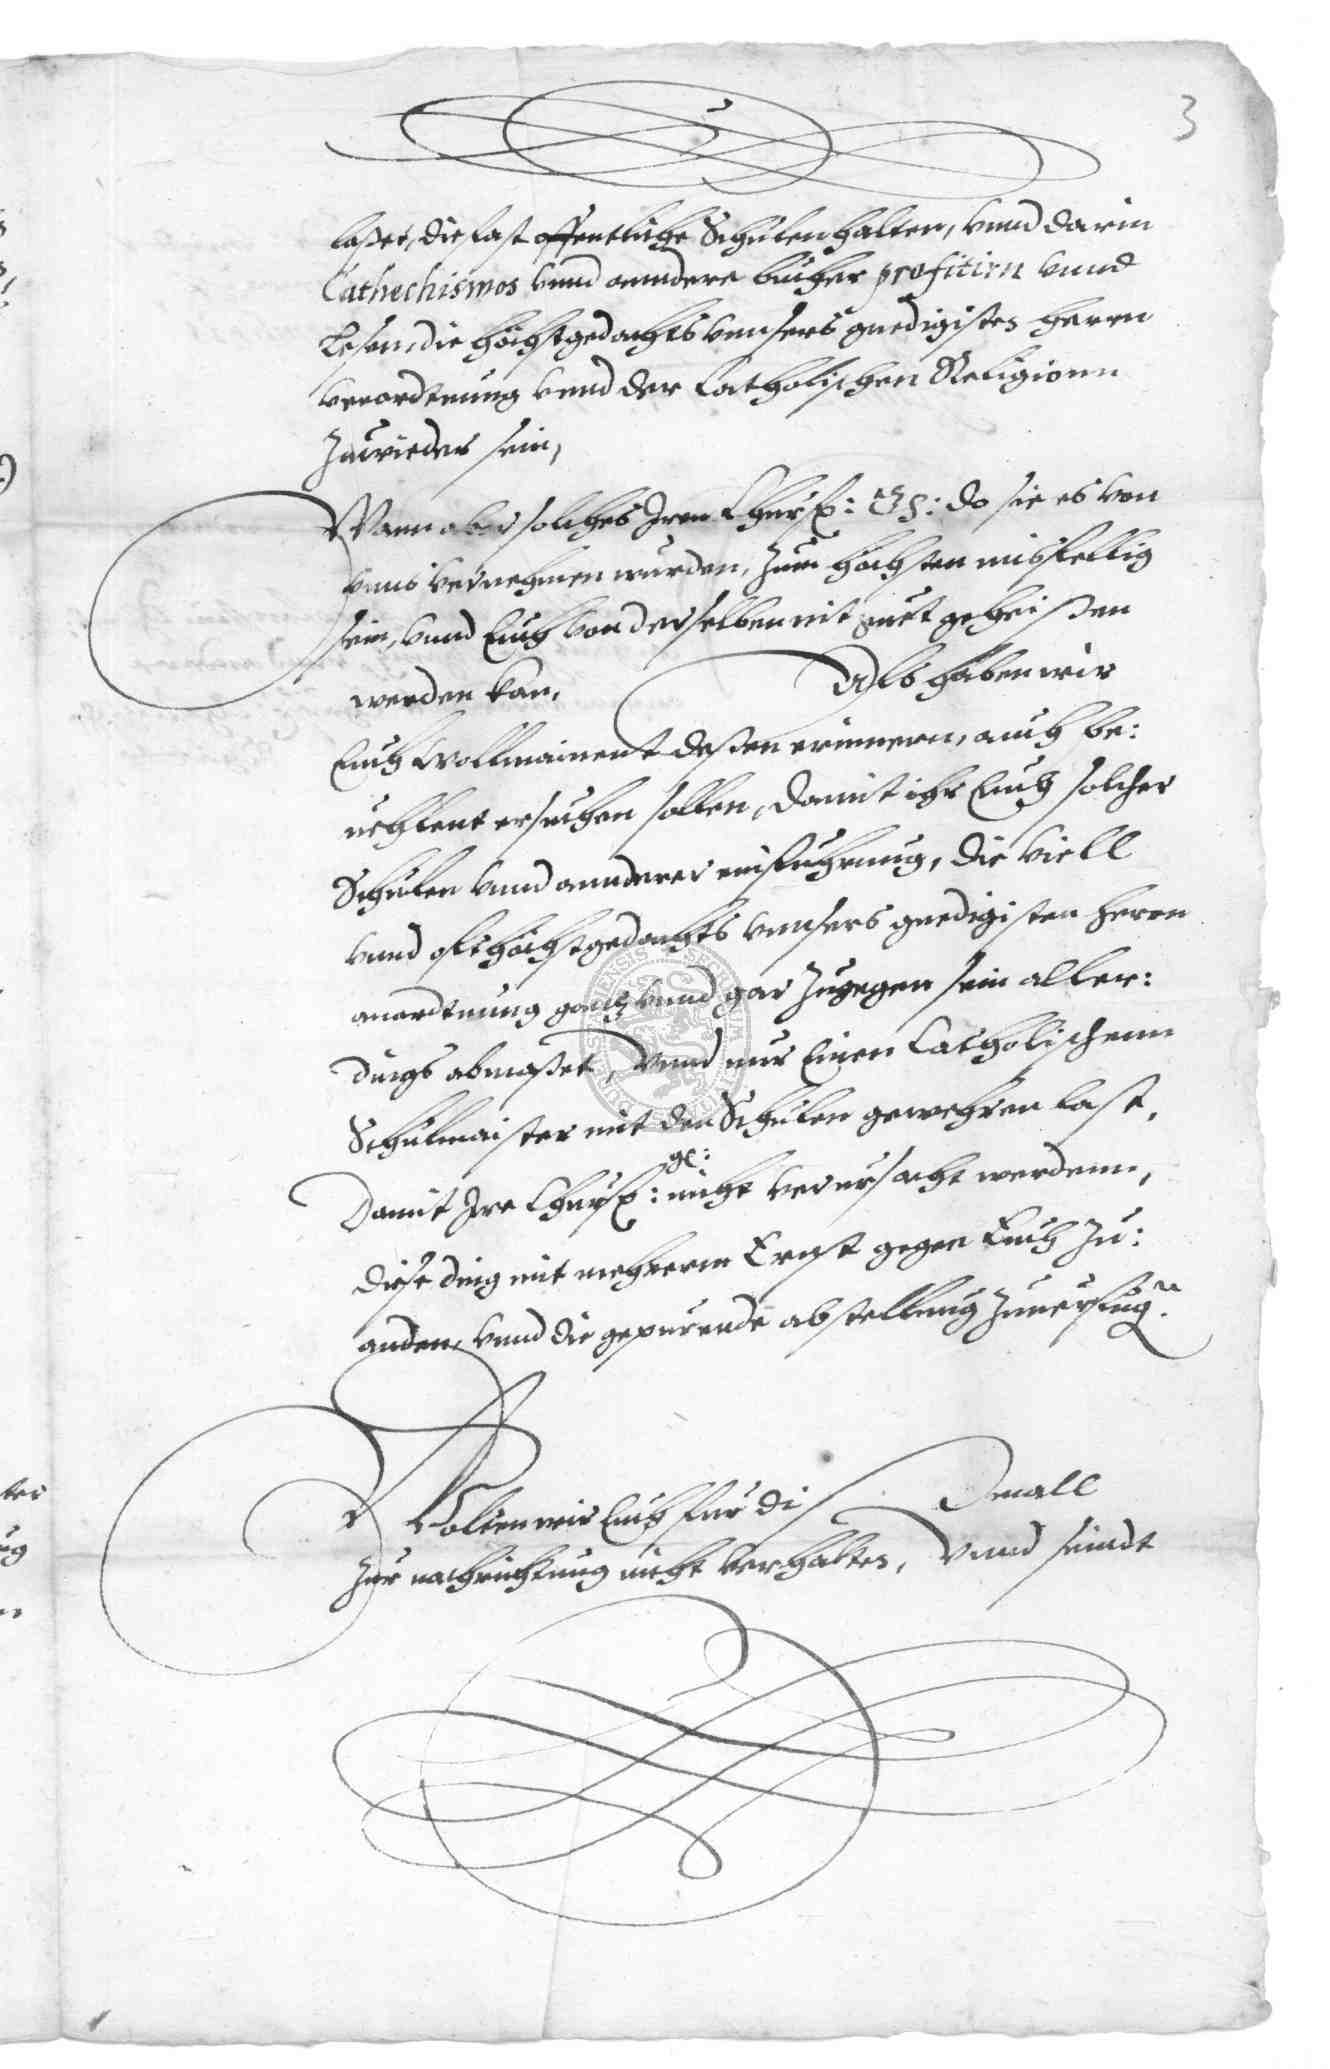 3
lasset, die fast offentliche Schulen halten, vnnd darin
Cathechismos vnnd anndere bücher profitirn vnnd
Lesen, die höchstgedachts vnnsers gnedigisten Herrn
verordtnung vnnd der Catholischen Religionn
Zuwieder sein,
Wann aber solches Irer Churf: do sie es von
vnns vernehmen wurden, zum höchsten misfellig
sein, vnnd Euch von derselben nit guet geheißen
werden kan, Als haben wir
Euch Wollmainent deßen erinnern, auch be:
uehlent ersuchen sollen, damit ihr Euch solcher
Schulen vnnd annderer einfuehrung, die Viell
vnnd offthöchstgedachts vnnsers gnedigisten Herrn
anordtnung gantz vnnd gar Zugegen sein aller:
dings abmaßet, Vnnd nur Einen Catholischenn
Schulmaister mit den Schulen gewehren last,
Damit Ire Churf: ge: nicht verursacht werdenn,
diese ding mit mehrerm Ernst gegen Euch Zu:
anden, vnnd die gepurende abstellung Zuuerfüg:n
Wolten wir Euch für diß Omall
Zur nachrichtung nicht verhalten, Vnnd seindt